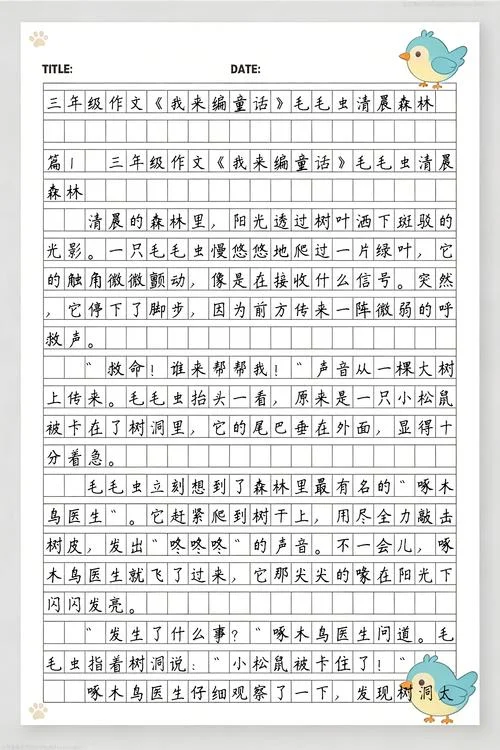 TITLE: DATE:
三年级作文《我来编童话》毛毛虫清晨森林
篇1 三年级作文《我来编童话》毛毛虫清晨
森林
清晨的森林里，阳光透过树叶洒下斑驳的
光影。一只毛毛虫慢悠悠地爬过一片绿叶，它
的触角微微颤动，像是在接收什么信号。突然
，它停下了脚步，因为前方传来一阵微弱的呼
救声。
“救命！谁来帮帮我！”声音从一棵大树
上传来。毛毛虫抬头一看，原来是一只小松鼠
被卡在了树洞里，它的尾巴垂在外面，显得十
分着急。
毛毛虫立刻想到了森林里最有名的“啄木
鸟医生”。它赶紧爬到树干上，用尽全力敲击
树皮，发出“咚咚咚”的声音。不一会儿，啄
木鸟医生就飞了过来，它那尖尖的喙在阳光下
闪闪发亮。
“发生了什么事？”啄木鸟医生问道。毛
毛虫指着树洞说：“小松鼠被卡住了！”
啄木鸟医生仔细观察了一下，发现树洞太